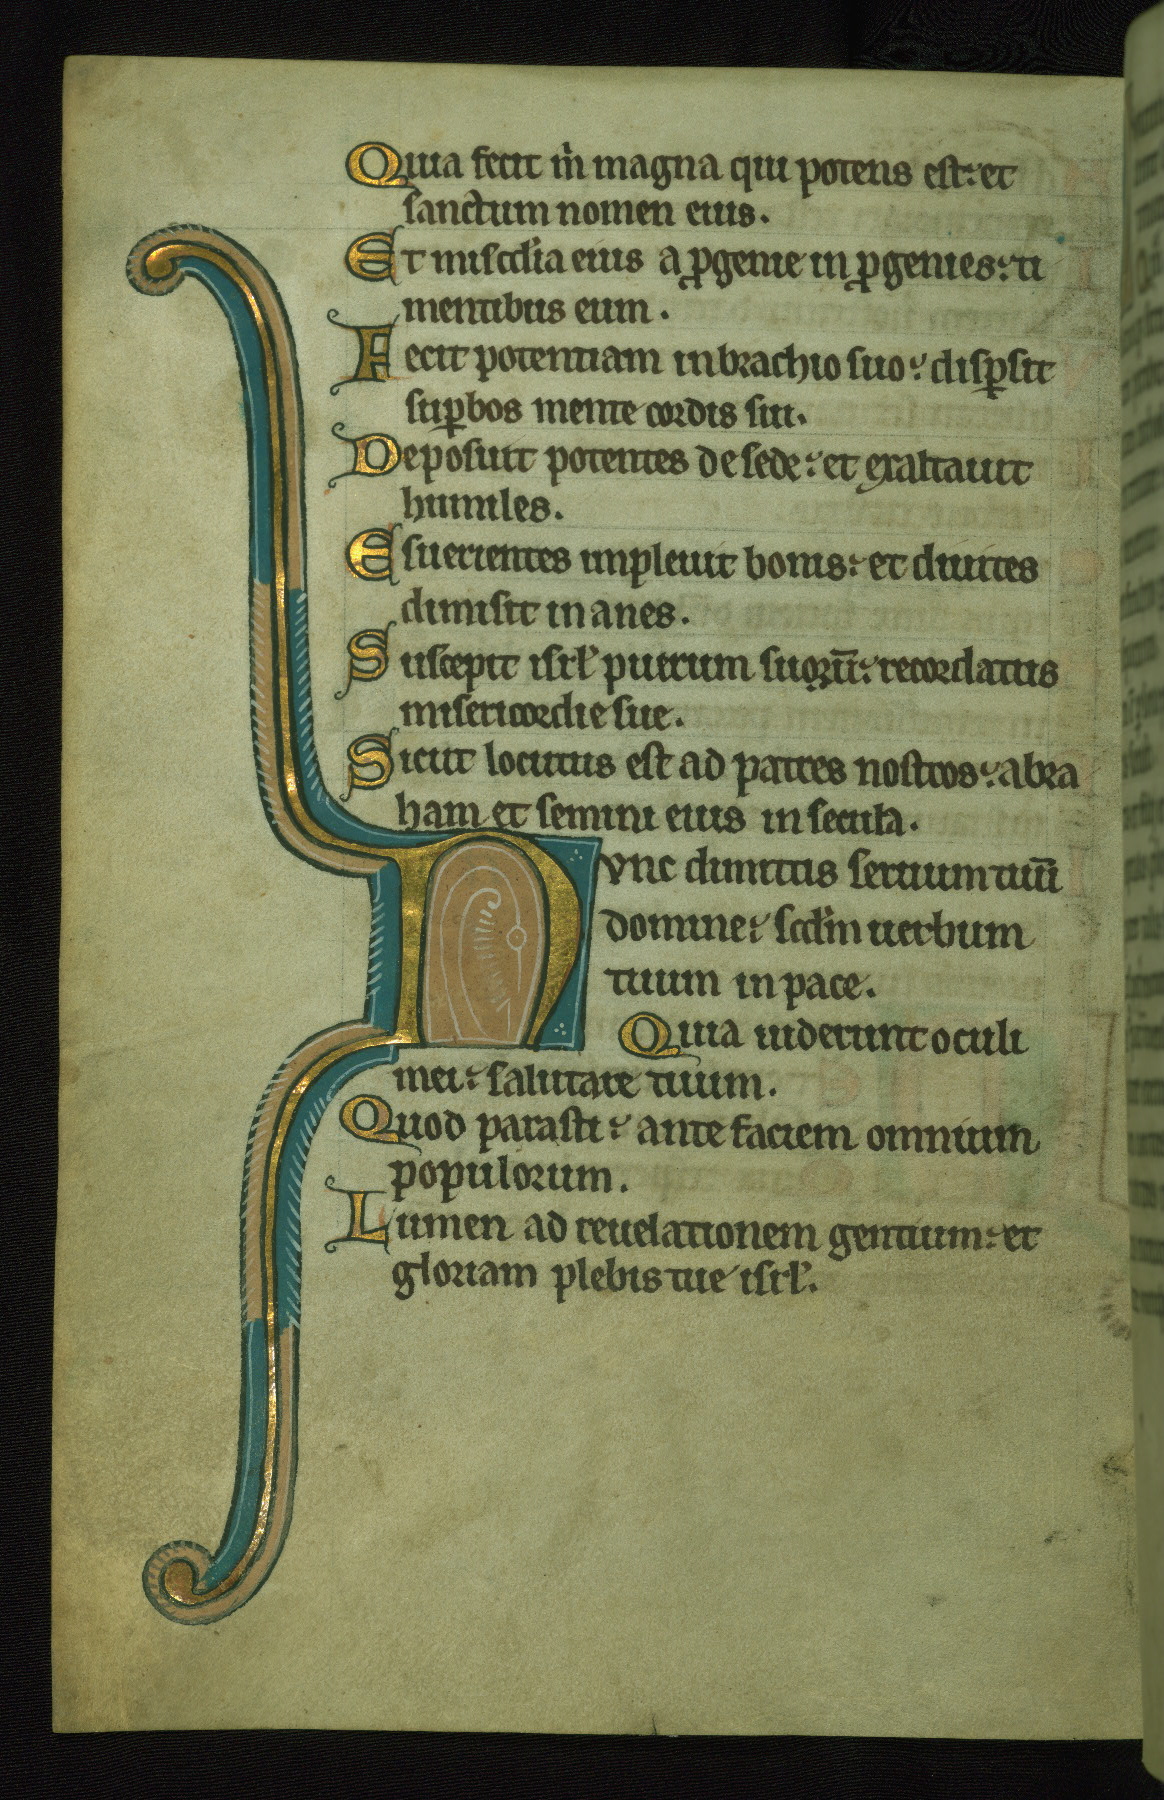 Quia fecit m̄ magna qui potens est: et
sanctum nomen eius.
Et mis̄cdīa eius a ꝓgenie in ꝓgenies: ti
mentibus eum.
Fecit potentiam in brachio suo: disꝑsit
suꝑbos mente cordis sui.
Deposuit potentes de sede: et exaltauit
humiles.
Esurientes impleuit bonis: et diuites
dimisit inanes.
Suscepit isrl̄ puerum suorū: recordatus
misericordie sue.
Sicut locutus est ad patres nostros: abra
ham et semini eius in secula.
Nunc dimittis seruum tuū
domine: scd̄m uerbum
tuum in pace.
Quia uiderunt oculi
mei: salutare tuum.
Quod parasti: ante faciem omnium
populorum.
Lumen ad reuelationem gentium: et
gloriam plebis tue isrl̄.